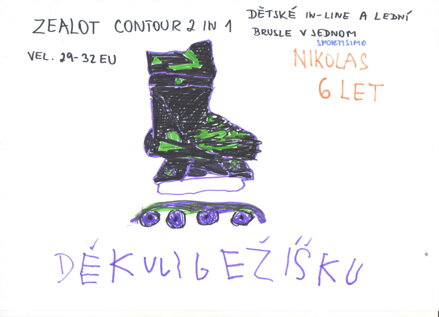 ZEALOT CONTOUR 2 IN 1
VEL. 29-32 EU
DĚTSKÉ IN-LINE A LEDNÍ
BRUSLE V JEDNOM
SPORTISIMO
NIKOLAS
6 LET
DĚKULI6EŽÍŠKU